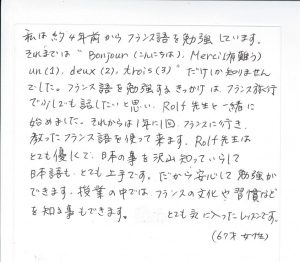 私は約4年前からフランス語を勉強しています。
それまでは“Bonjour(こんにちは), Merci(有難う)
un(1), deux(2), trois(3)”だけしか知りません
でした。フランス語を勉強するきっかけは、フランス旅行
で少しでも話したいと思い、Rolf先生と一緒に
始めました。それからは1年に1回、フランスに行き、
教ったフランス語を使って来ます。Rolf先生は
とても優しくて、日本の事を沢山知っていらして
日本語も、とても上手です。だから安心して勉強が
できます。授業の中では、フランスの文化や習慣など
を知る事もできます。 とても気に入ったレッスンです。
(67才 女性)